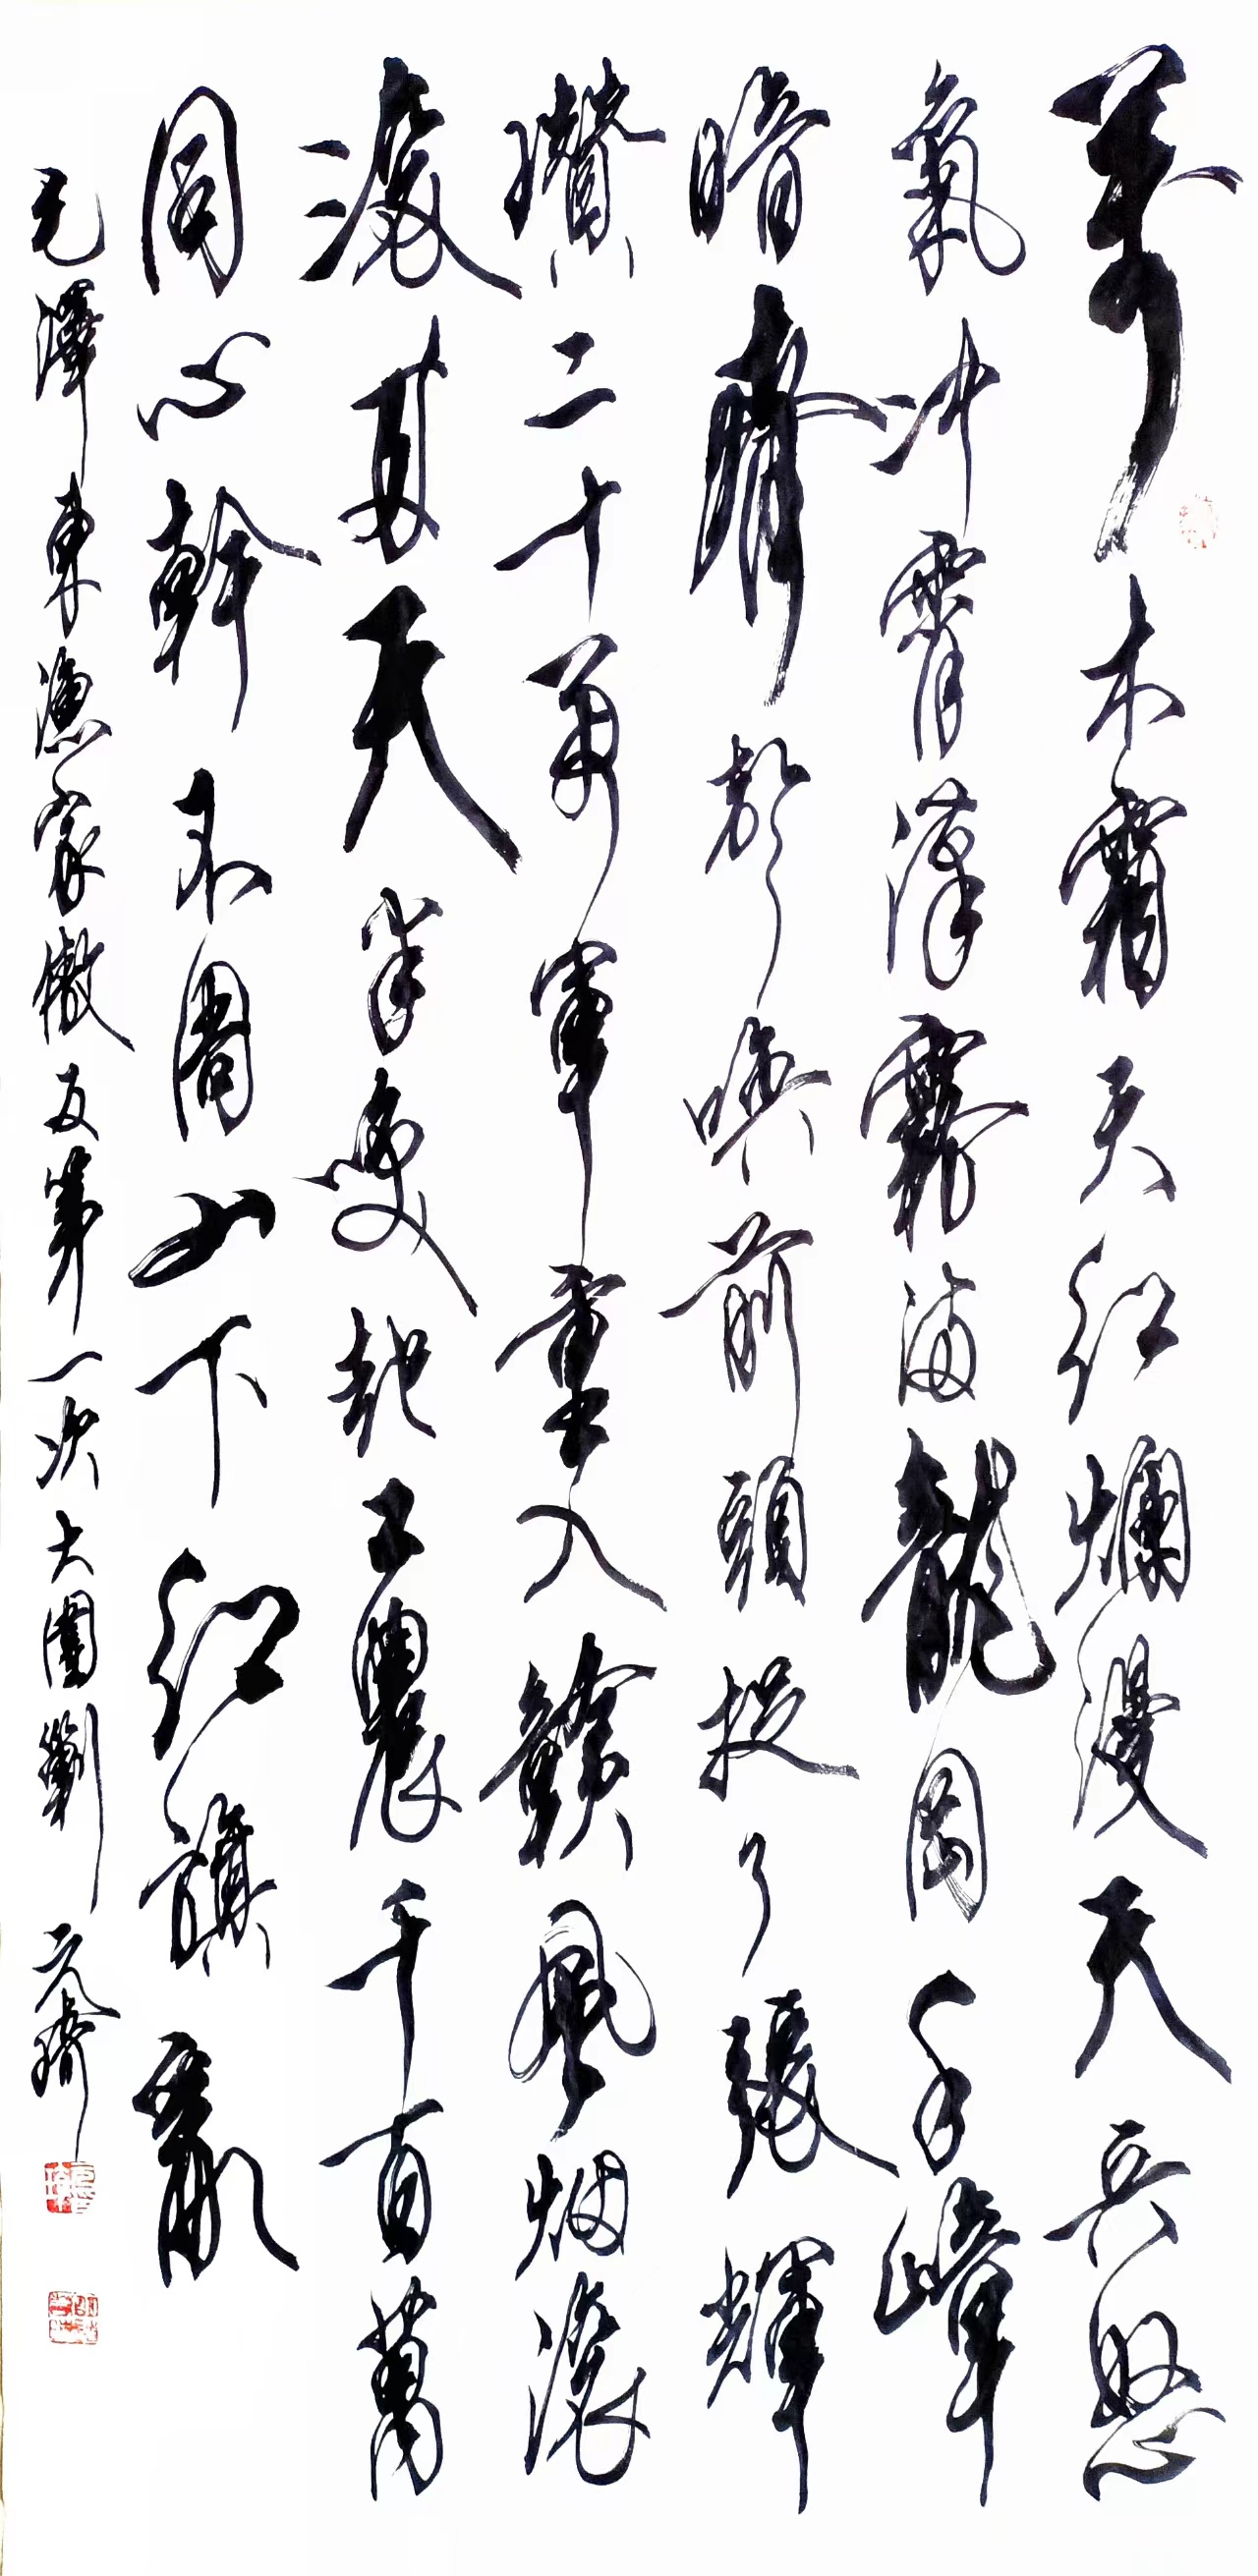 萬木霜天红爛漫天兵怒
氣冲霄漢霧满龍岡千嶂
暗齊聲唤前頭捉了張輝
瓚二十萬軍重入贛風烟滚
滚來天半喚起工農千百萬
同心幹不周山下红旗亂
毛澤東漁家傲反第一次大圍剿